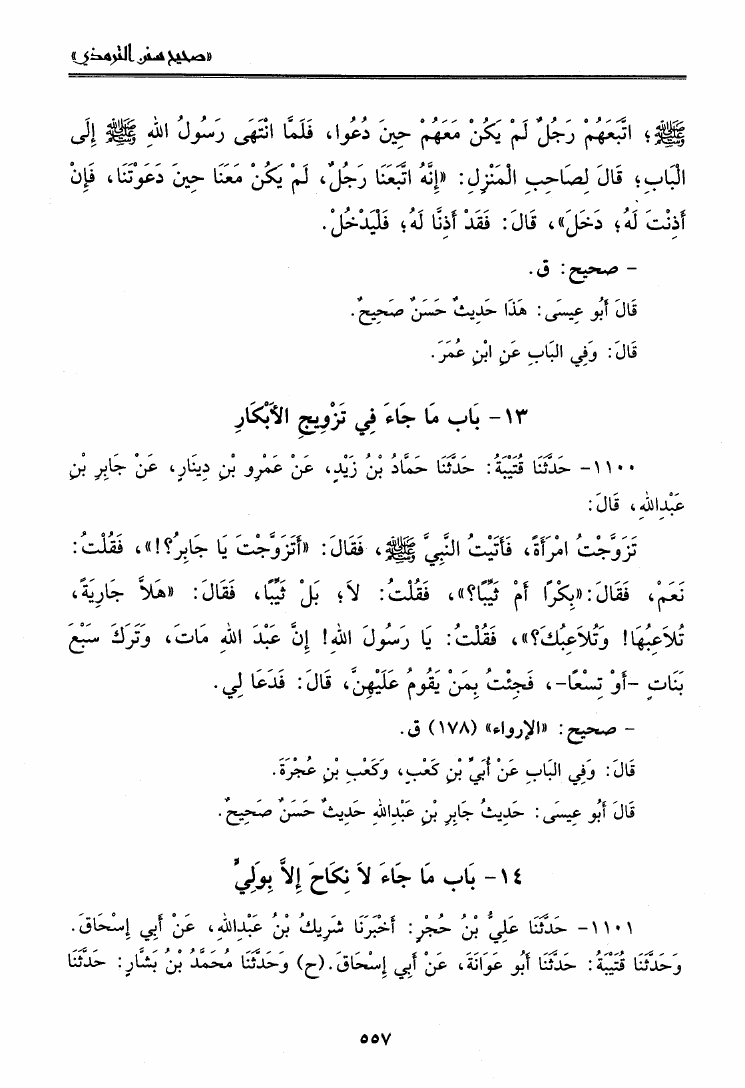 «صحيح سنن الترمذي»
ﷺ؛ اتَّبَعَهُمْ رَجُلٌ لَمْ يَكُنْ مَعَهُمْ حِينَ دُعُوا، فَلَمَّا انْتَهَى رَسُولُ اللهِ ﷺ إِلَى
الْبَابِ؛ قَالَ لِصَاحِبِ الْمَنْزِلِ: «إِنَّهُ اتَّبَعَنَا رَجُلٌ، لَمْ يَكُنْ مَعَنَا حِينَ دَعَوْتَنَا، فَإِنْ
أَذِنْتَ لَهُ؛ دَخَلَ»، قَالَ: فَقَدْ أَذِنَّا لَهُ؛ فَلْيَدْخُلْ.
- صحيح: ق.
قَالَ أَبُو عِيسَى: هَذَا حَدِيثٌ حَسَنٌ صَحِيحٌ.
قَالَ: وَفِي البَابِ عَنِ ابْنِ عُمَرَ.
١٣- بَاب مَا جَاءَ فِي تَزْوِيجِ الأَبْكَارِ
١١٠٠- حَدَّثَنَا قُتَيْبَةُ: حَدَّثَنَا حَمَّادُ بْنُ زَيْدٍ، عَنْ عَمْرِو بْنِ دِينَارٍ، عَنْ جَابِرِ بْنِ
عَبْدِاللهِ، قَالَ:
تَزَوَّجْتُ امْرَأَةً، فَأَتَيْتُ النَّبِيَّ ﷺ، فَقَالَ: «أَتَزَوَّجْتَ يَا جَابِرُ؟!»، فَقُلْتُ:
نَعَمْ، فَقَالَ:«بِكْرًا أَمْ ثَيِّبًا؟»، فَقُلْتُ: لاَ؛ بَلْ ثَيِّبًا، فَقَالَ: «هَلاَّ جَارِيَةً،
تُلاَعِبُهَا! وَتُلاَعِبُكَ؟»، فَقُلْتُ: يَا رَسُولَ اللهِ! إِنَّ عَبْدَ اللهِ مَاتَ، وَتَرَكَ سَبْعَ
بَنَاتٍ -أَوْ تِسْعًا-، فَجِئْتُ بِمَنْ يَقُومُ عَلَيْهِنَّ، قَالَ: فَدَعَا لِي.
- صحيح: «الإرواء» (١٧٨) ق.
قَالَ: وَفِي البَابِ عَنْ أُبَيِّ بْنِ كَعْبٍ، وَكَعْبِ بْنِ عُجْرَةَ.
قَالَ أَبُو عِيسَى: حَدِيثُ جَابِرِ بْنِ عَبْدِاللهِ حَدِيثٌ حَسَنٌ صَحِيحٌ.
١٤- بَاب مَا جَاءَ لاَ نِكَاحَ إِلاَّ بِوَلِيٍّ
١١٠١- حَدَّثَنَا عَلِيُّ بْنُ حُجْرٍ: أَخْبَرَنَا شَرِيكُ بْنُ عَبْدِاللهِ، عَنْ أَبِي إِسْحَاقَ.
وَحَدَّثَنَا قُتَيْبَةُ: حَدَّثَنَا أَبُو عَوَانَةَ، عَنْ أَبِي إِسْحَاقَ.(ح) وَحَدَّثَنَا مُحَمَّدُ بْنُ بَشَّارٍ: حَدَّثَنَا
٥٥٧